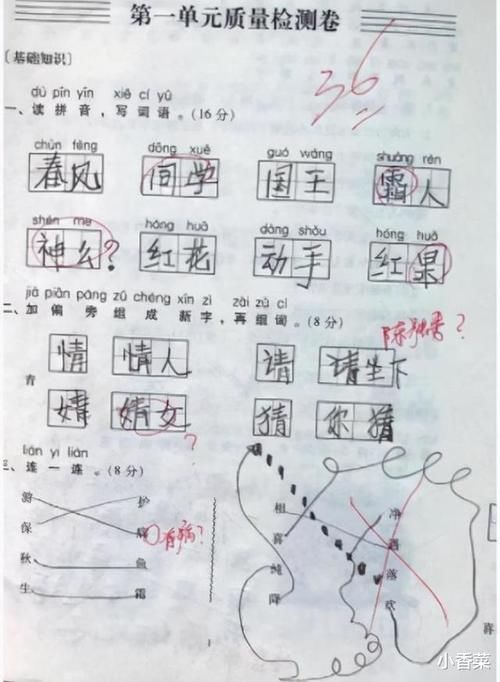 第一单元质量检测卷
36
〔基础知识〕
dú pīn yīn xiě cí yǔ
一、读拼音，写词语。(16分)
chūn fēng dōng xuě guó wáng shuāng rén
春风 同学 国王 霜人
shén me hóng huā dòng shǒu hóng huǒ
神么？ 红花 动手 红果
jiā piān páng zǔ chéng xīn zì zài zǔ cí
二、加偏旁组成新字，再组词。(8分)
？
青
情 情人 请 请坐下
婧 婧女 猜 你猜
？
lián yi lián
三、连一连。(8分)
游 护
保 病
有病？
秋 鱼
生 霜
相 净
喜 遇
纯 落
降 欢
1
喜
小香菜